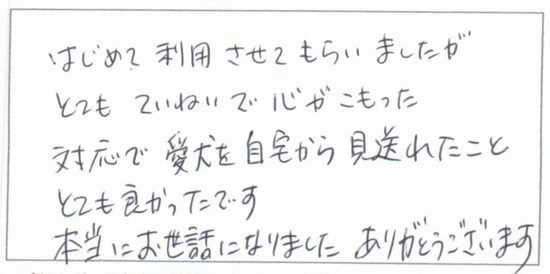 はじめて 利用 させて もらい ましたが
とても ていねいで 心が こもった
対応で 愛犬を 自宅から 見送れたこと
とても良かったです
本当に お世話になりました ありがとうございます